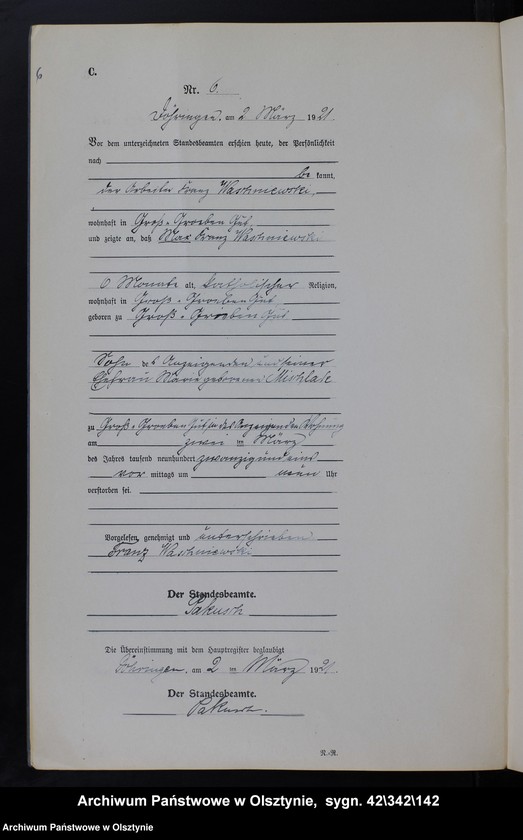 6
C.
Nr. 6.
Döhringen, am 2 März 1921.
Vor dem unterzeichneten Standesbeamten erschien heute, der Persönlichkeit
nach
be kannt,
der Arbeiter Franz Waschniewski,
wohnhaft in Groß-Groeben Gut
und zeigte an, daß Max Franz Waschniewski
6 Monate alt, katholischer Religion,
wohnhaft in Groß-Groeben Gut
geboren zu Groß-Groeben Gut
Sohn des Anzeigenden und seiner
Ehefrau Marie geborenen
zu Groß-Groeben Gut in des Anzeigenden Wohnung
am zwei ten März
des Jahres tausend neunhundert zwanzigundeins
vor mittags um neun Uhr
verstorben sei.
Vorgelesen, genehmigt und unterschrieben
Franz Waschniewski
Der Standesbeamte.
Pakusch
Die Übereinstimmung mit dem Hauptregister beglaubigt
Döhringen, am 2 ten März 1921.
Der Standesbeamte.
Pakusch.
R.-R.
Archiwum Państwowe w Olsztynie, sygn. 42\342\142
Archiwum Państwowe w Olsztynie